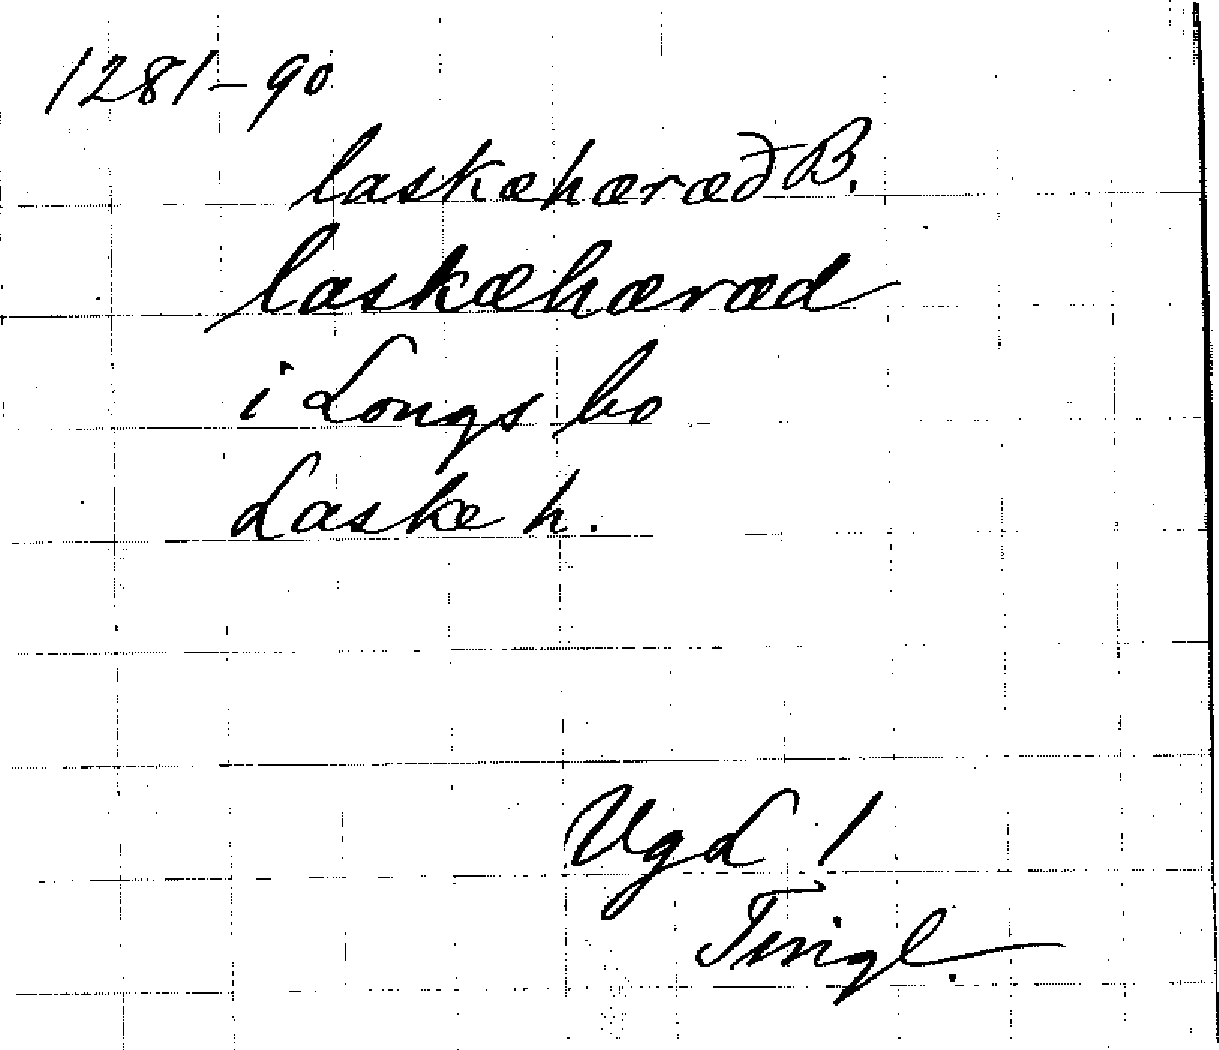 1281-90
laskæhæræð B.
laskæhæræd
i Longs bo
Laske h.
VgL 1
Tingl.